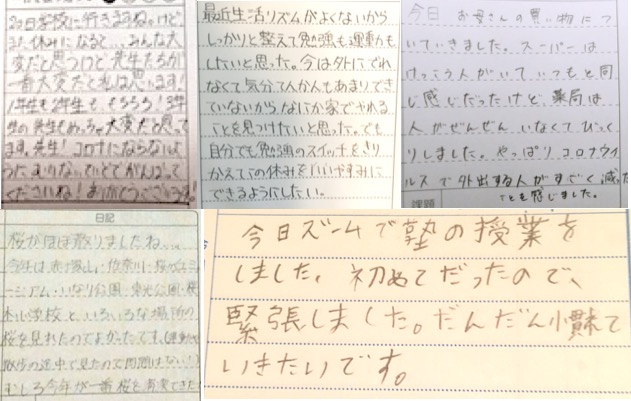 20日学校に行きますね。けど
また休みになると...みんな大
変だと思うけど先生たちが
一番大変だと私は思います!
1年生も2年生も、もちろん!3年
生の先生もめっちゃ大変だと思って
ます。先生!コロナにならないよ
うにむりないていどでがんばって
くださいね!ありがとうございます!
最近生活リズムがよくないから
しっかりと整えて勉強も運動も
したいと思った。今は外にでれ
なくて気分てんかんもあまりでき
ていないからなにか家でやれる
ことを見つけたいと思った。でも
自分でも勉強のスイッチをきり
かえてこの休みをいいやすみに
できるようにしたい。
今日 お母さんの買い物につ
いていきました。スーパーは
けっこう人がいて、いつもと同
じ感じだったけど、薬局は
人がぜんぜんいなくてびっく
りしました。やっぱりコロナウイ
ルスで外出する人がすごく減った
ことも感じました。
課題
日記
桜がほぼ散りましたね...
今年は
公園
小学校と、いろいろな場所の
桜を見れたのでよかったです。
散歩の途中で見たので問題はない!)
むしろ今年が一番桜を
今日ズームで塾の授業を
しました。初めてだったので、
緊張しました。だんだん慣れて
いきたいです。